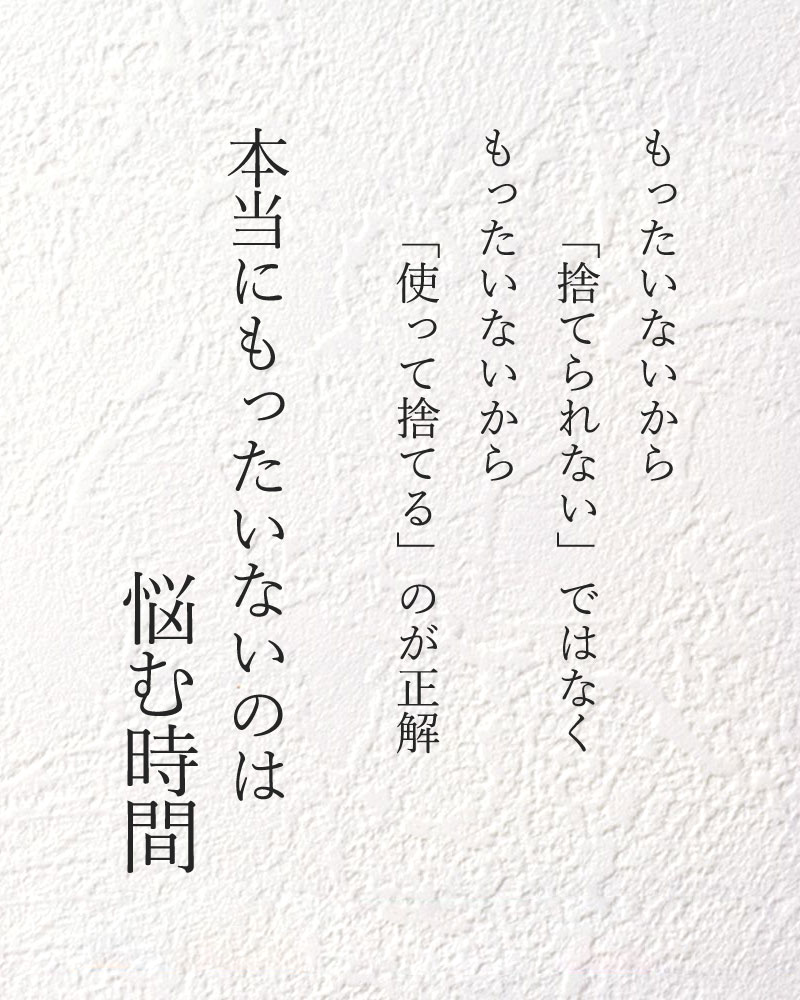 もったいないから
「捨てられない」ではなく
もったいないから
「使って捨てる」のが正解
本当にもったいないのは
悩む時間